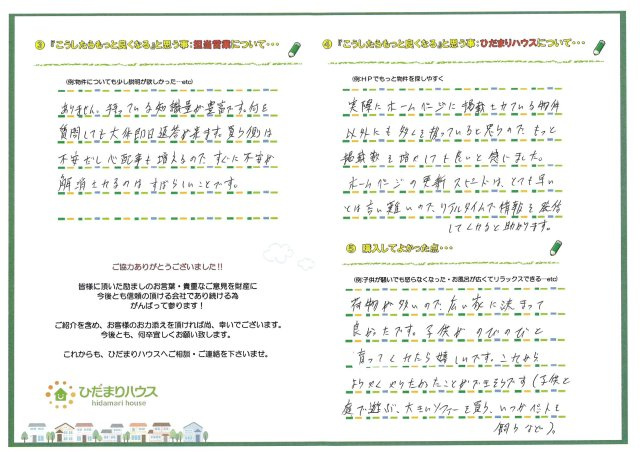 ③『こうしたらもっと良くなる』と思う事:担当営業について・・・
(例:物件についても少し説明が欲しかった…etc)
ありません。持っている知識量が豊富です。何を
質問しても大体即日返答が来ます。買う側は
不安だし心配事も増えるので、すぐに不安が
解消されるのはすばらしいことです。
ご協力ありがとうございました!!
皆様に頂いた励ましのお言葉・貴重なご意見を財産に
今後とも信頼の頂ける会社であり続ける為
がんばって参ります!
ご紹介を含め、お客様のお力添えを頂ければ尚、幸いでございます。
今後とも、何卒宜しくお願い致します。
これからも、ひだまりハウスへご相談・ご連絡を下さいませ。
ひだまりハウス
hidamari house
④『こうしたらもっと良くなる』と思う事:ひだまりハウスについて・・・
(例:HPでもっと物件を探しやすく)
実際にホームページに掲載されている物件
以外にも多く扱っていると思うので、もっと
掲載数を増やしても良いと感じました。
ホームページの更新スピードは、とても早い
とは言い難いのでリアルタイムで情報を発信
してくれると助かります。
⑤ 購入してよかった点・・・
(例:子供が騒いでも怒らなくなった・お風呂が広くてリラックスできる…etc)
荷物が多いので、広い家に決まって
良かったです。子供がのびのびと
育ってくれたら嬉しいです。これから
ようやくやりたかったことができそうです(子供と
庭で遊ぶ、大きいソファーを買う、いつかペットを
飼うなど)。